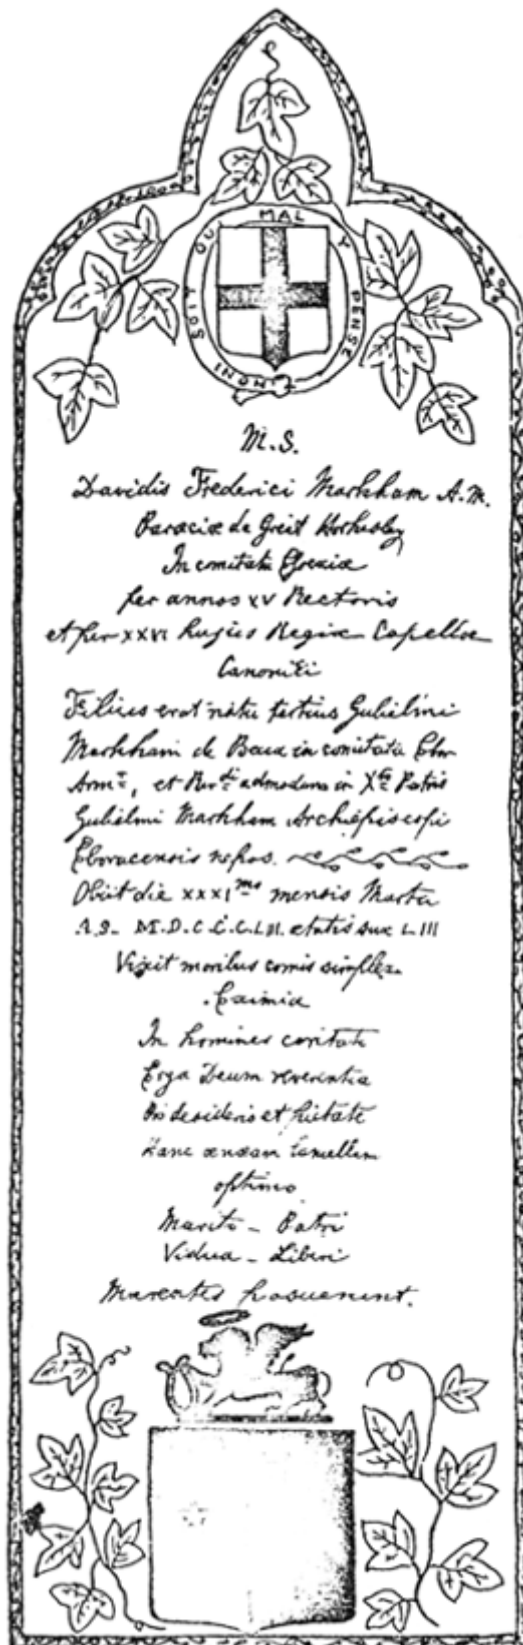 HONI SOIT QU MAL Y PENSE
M.S.
Davidis Frederici Markham A.M.
Paraciæ de Greit Horkesley
In comitatu
per annos XV Rectoris
et per XXVI hujus Regiæ Capellæ
Canonici
Filius erat natu tertius Gulielmi
Markham de Becca in comitatu Ebr
Armr, et Revdi admodum in Xto Patris
Gulielmi Markham Archiepiscopi
Eboracensis nepos.
Obiit die XXXImo mensis Martii
A.S. M.D.C.C.C.LIII. etatis suæ LIII
Vixit moribus comis simplex
Eximia
In homines caritate
Erga Deum reverentia
desiderio et pietate
Hanc
optimo
Marito - Patri
Vidua - Liberi
Mœrentes posuerunt.